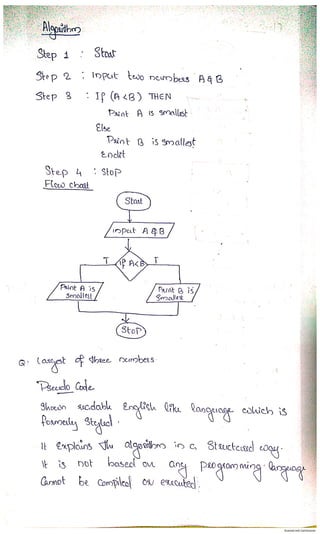 Algorithm
Step 1 : Start
Step 2 : input two numbers A & B
Step 3 : If (A<B) THEN
Print A is smallest
Else
Print B is smallest
Endif
Step 4 : Stop
Flow chart
Start
input A & B
T If A<B T
Print A is smallest Print B is smallest
Stop
Q. Largest of three numbers.
Pseudo Code
Shown readable English like language which is
formerly styled.
It explains the algorithm in a structured way.
It is not based on any programming language
Cannot be compiled or executed.